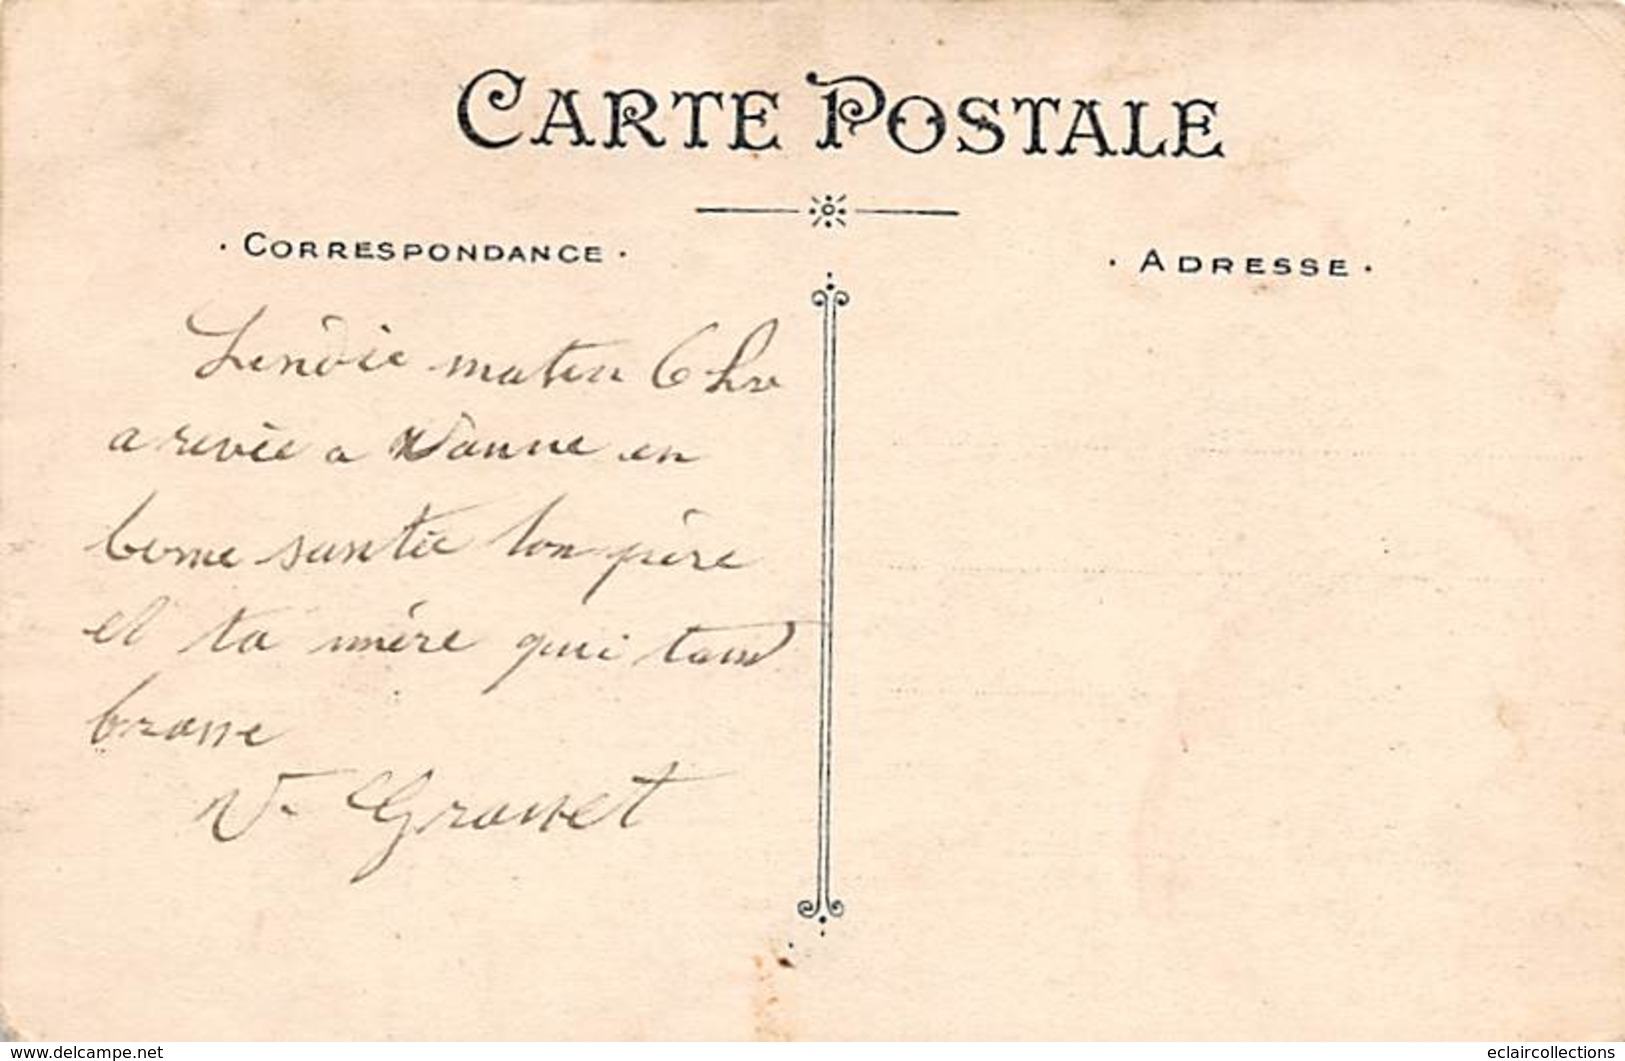 CARTE POSTALE
· CORRESPONDANCE ·
· ADRESSE ·
Lendie maten 6 hr
a rivée a Vanne en
bonne santée ton père
et ta mère qui tand
brasse
V. Grasset
www.delcampe.net
eclaircollections